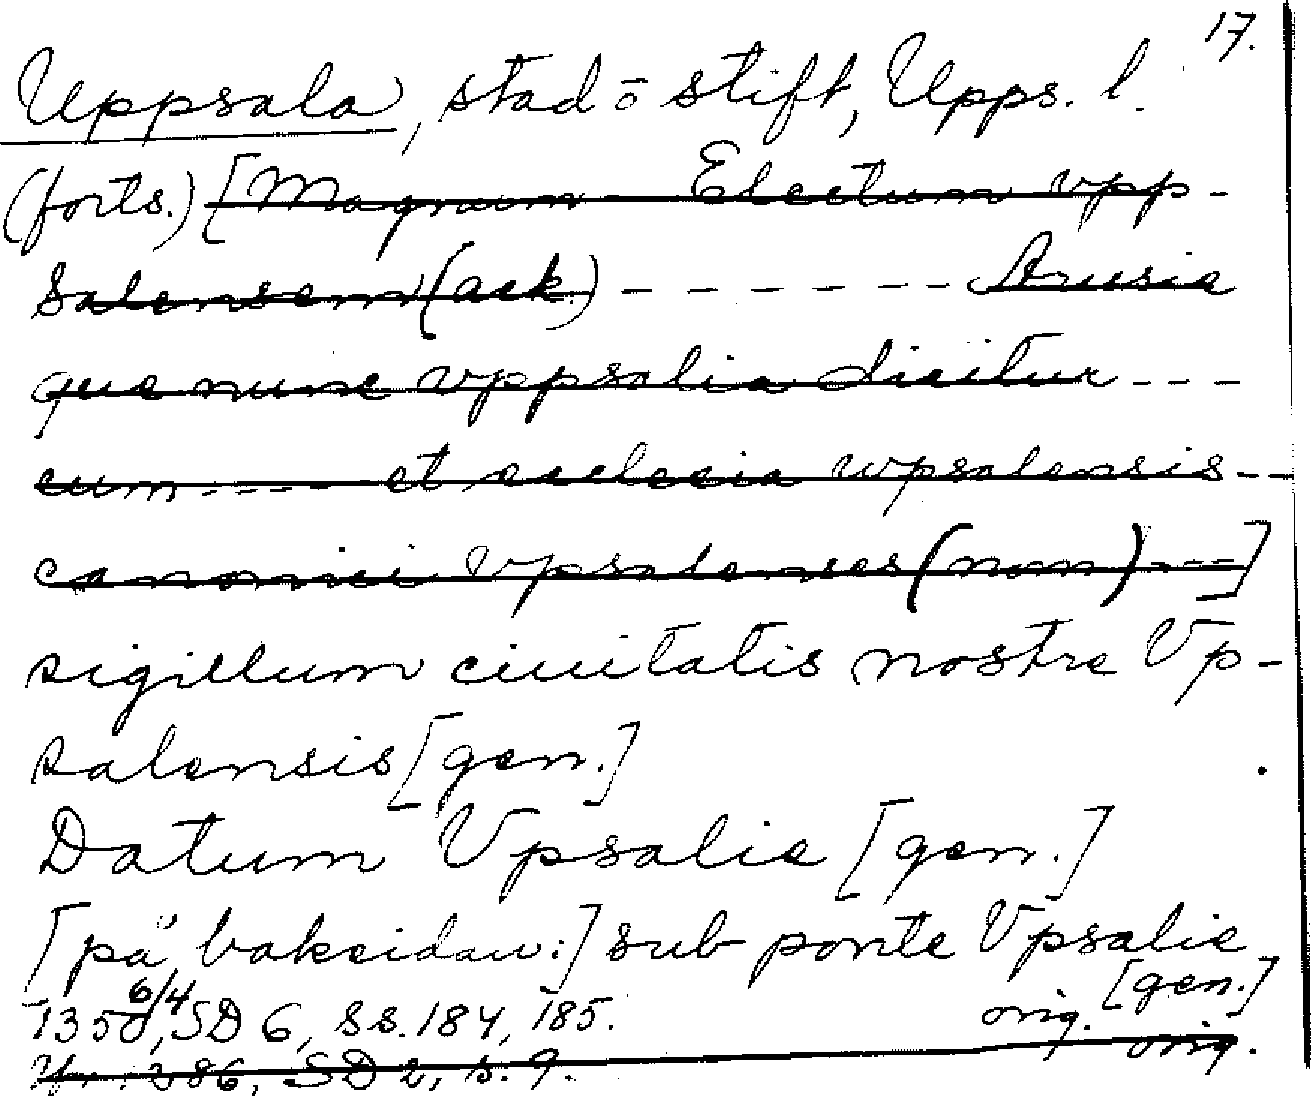 17.
Uppsala, stad o stift, Upps. l.
(forts.) [Magnum Electum vpp-
salensem (ack.) ------- Arusia
que nunc vppsalia dicitur ---
cum ---- et ecclecia wpsalensis --
canonici vpsalenses (nom) ---]
sigillum ciuitatis nostre Vp-
salensis [gen.]
Datum Vpsalie [gen.]
[på baksidan:] sub ponte Vpsalie
[gen.]
1350 6/4, SD 6, ss. 184, 185. orig.
1286, SD 2, s. 9. orig.